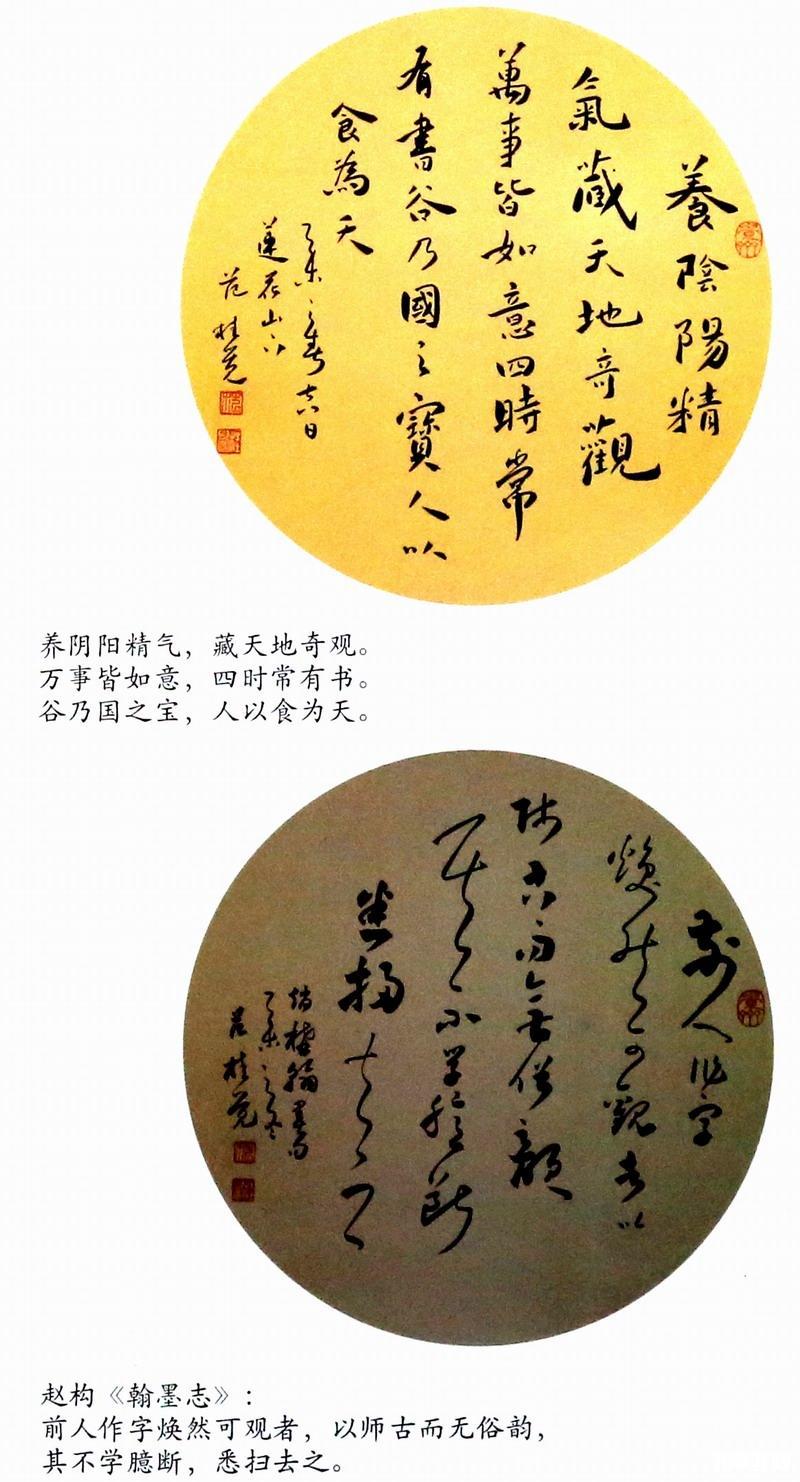 養陰陽精
氣藏天地奇觀
萬事皆如意四時常
有書谷乃國之寶人以
食為天
乙未之春十六日
蓮花山下
范桂荛
养阴阳精气，藏天地奇观。
万事皆如意，四时常有书。
谷乃国之宝，人以食为天。
前人作字
焕然可觀者以
师古而無俗韻
其不学臆断
悉掃去之
赵构《翰墨志》：
前人作字焕然可观者，以师古而无俗韵，
其不学臆断，悉扫去之。